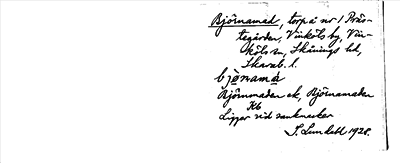 Björnamad, torp å nr 1 Präs-
tegården, Vinköls by, Vin-
köls sn, Skånings hd,
Skarab. l.
bjönamá
Björnmaden ek, Björnamaden
Kb
Ligger vid sankmarker
S. Lundahl 1928.